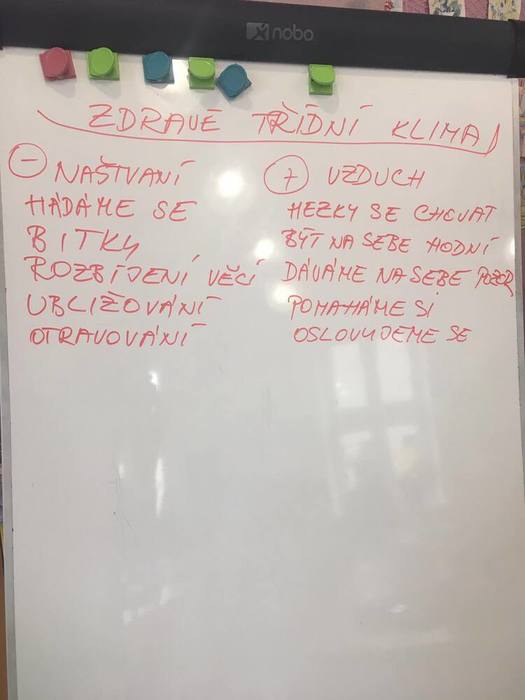 nobo
ZDRAVÉ TŘÍDNÍ KLIMA
- NAŠTVANÍ
HÁDÁME SE
BITKY
ROZBÍJENÍ VĚCÍ
UBLIŽOVÁNÍ
OTRAVOVÁNÍ
+ VZDUCH
HEZKY SE CHOVAT
BÝT NA SEBE HODNÍ
DÁVÁME NA SEBE POZOR
POMAHÁME SI
OSLOVUJEME SE